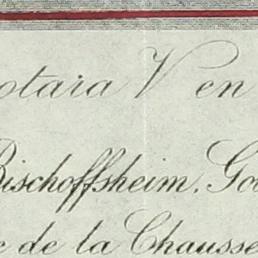 otara V en
Bischoffsheim, Go
de la Chausse